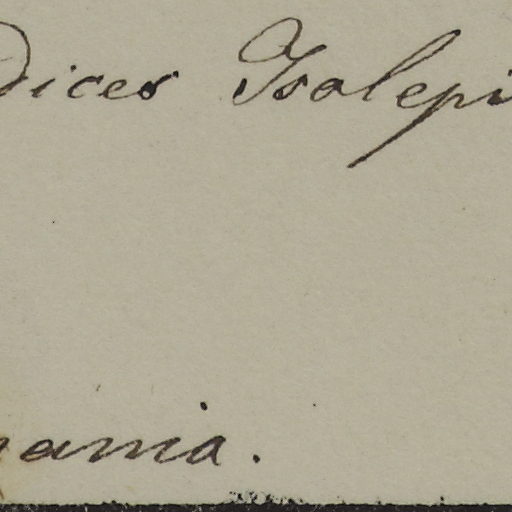 dices Isolepi
mania.